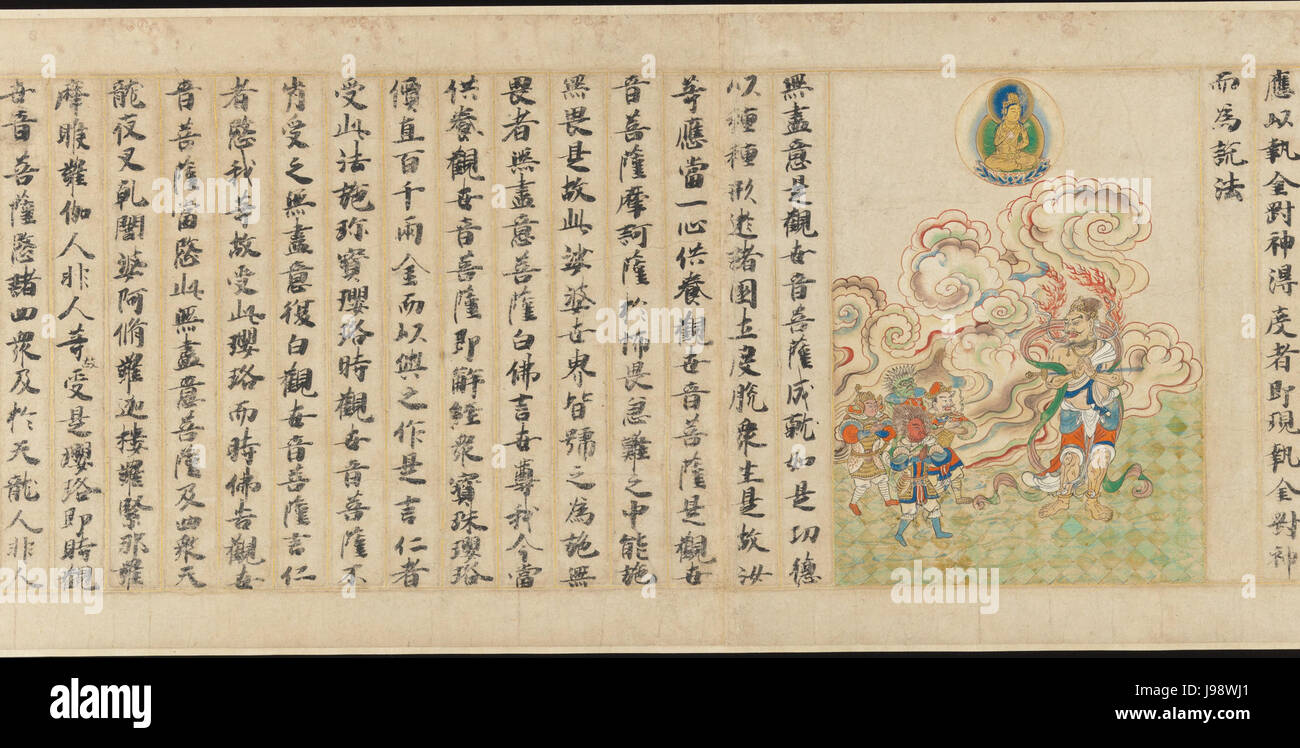 應以執金剛神得度者即現執金剛神
而為說法
無盡意是觀世音菩薩成就如是功德
以種種形遊諸國土度脫衆生是故汝
等應當一心供養觀世音菩薩是觀世
音菩薩摩訶薩於怖畏急難之中能施
無畏是故此娑婆世界皆號之為施無
畏者無盡意菩薩白佛言世尊我今當
供養觀世音菩薩即解經衆寶珠瓔珞
價直百千兩金而以與之作是言仁者
受此法施珍寶瓔珞時觀世音菩薩不
肯受之無盡意復白觀世音菩薩言仁
者愍我等故受此瓔珞而時佛告觀世
音菩薩當愍此無盡意菩薩及四衆天
龍夜叉乹闥婆阿脩羅迦樓羅緊那羅
摩睺羅伽人非人等故受是瓔珞即時觀
世音菩薩愍諸四衆及於天龍人非人